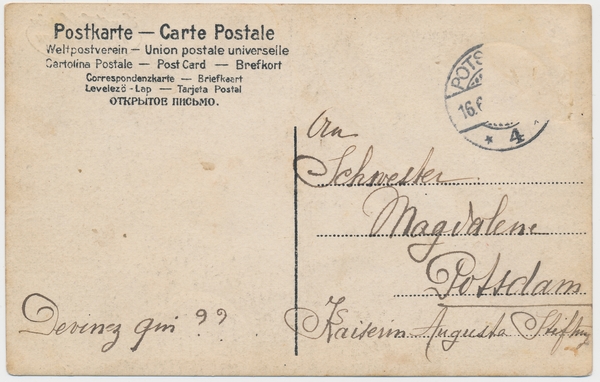 Postkarte — Carte Postale
Weltpostverein — Union postale universelle
Cartolina Postale — Post Card — Brefkort
Correspondenzkarte — Briefkaart
Levelező-Lap — Tarjeta Postal
ОТКРЫТОЕ ПИСЬМО.
POTS
16.6
* 4
An
Schwester
Magdalene
Potsdam
Kaiserin Augusta Stiftung
Devinez qui ??